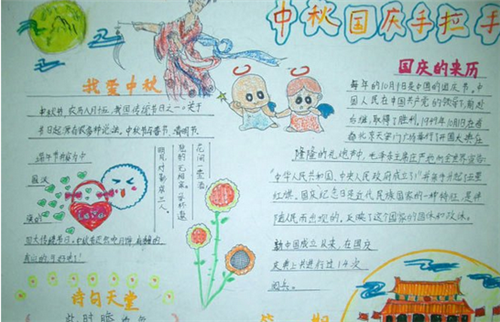 中秋国庆手拉手
我爱中秋
中秋节,农历八月十五,我国传统节日之一。关于
节日起源有很多种说法,中秋节与春节、清明节、
端午节并称为中
国汉
族的
四大传统节日。
花间一壶酒
独酌无相亲。举杯邀
明月对影成三人
诗句天堂
国庆的来历
每年的10月1日是全国的国庆节,中
国人民在中国共产党的领导下前赴
后继,取得了胜利,1949年10月1日在首
都北京天安门广场举行了开国大典在
隆隆的礼炮声中,毛泽东主席庄严地向全世界宣告
“中华人民共和国,中央人民政府成立了!”并亲手升起了五星
红旗。国庆纪念日是近代民族国家的一种特征,是伴
随
而出现的,反映了这个国家的国体和政体。
新中国成立以来,在国庆
庆典上共进行过14次
阅兵。